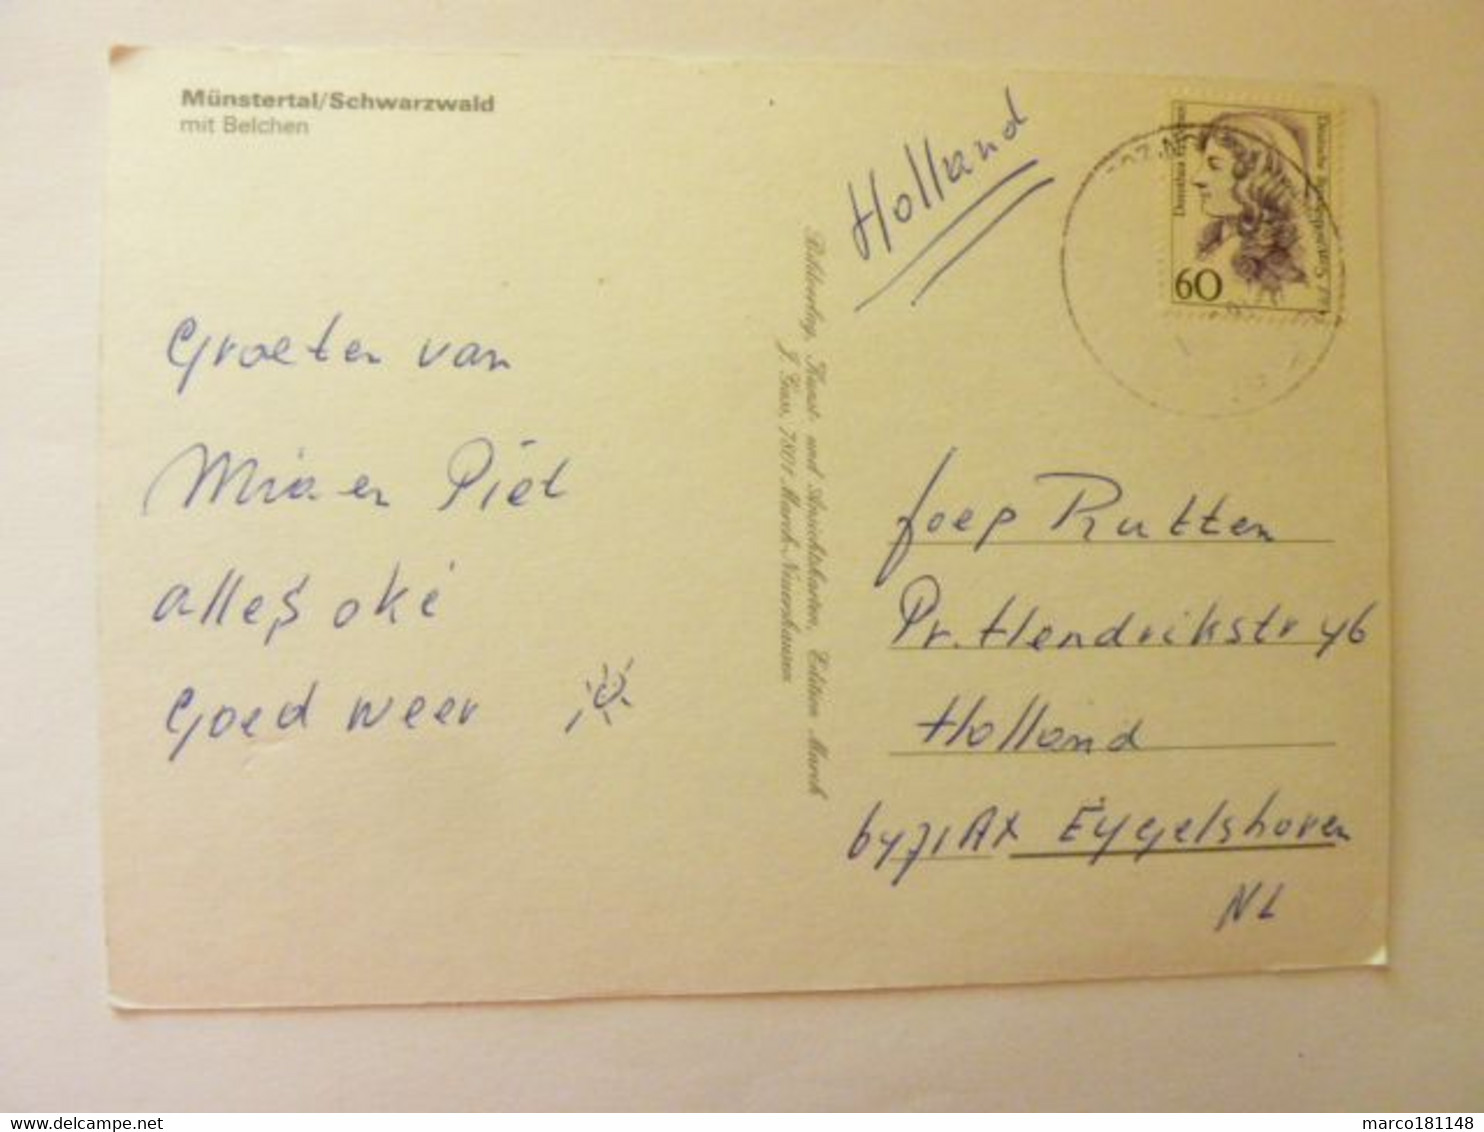 Münstertal/Schwarzwald
mit Belchen
Groeten van
Mia en Piet
alles oké
Goed weer
Bildverlag, Kunst- und Ansichtskarten, Edition March
7801 March-Neuershausen
Holland
60
Joep Rutten
Pr. Hendrikstr 46
Holland
6471AX Eygelshoven
NL
marco181148